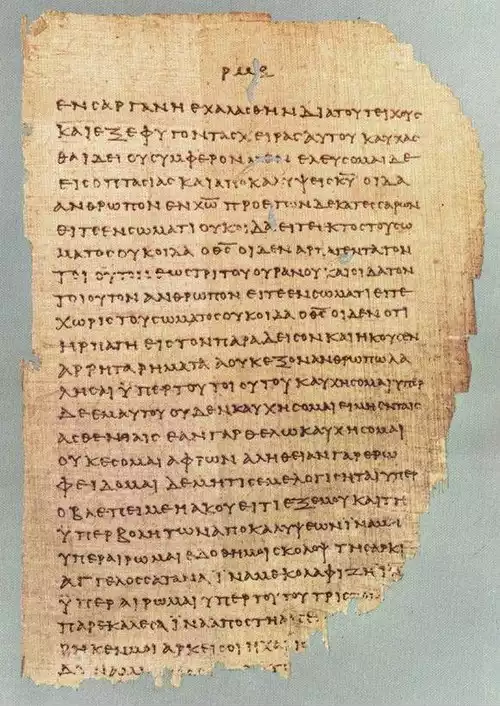 ΡΜΘ
ΕΝϹΑΡΓΑΝΗΕΧΑΛΑϹΘΗΝΔΙΑΤΟΥΤΕΙΧΟΥϹ
ΚΑΙΕΞΕΦΥΓΟΝΤΑϹΧΕΙΡΑϹΑΥΤΟΥΚΑΥΧΑϹ
ΘΑΙΔΕΙΟΥϹΥΜΦΕΡΟΝ ΕΛΕΥϹΟΜΑΙΔΕ
ΕΙϹΟΠΤΑϹΙΑϹΚΑΙΑΠΟΚΑΛΥΨΕΙϹΚ̅Υ̅ΟΙΔΑ
ΑΝΘΡΩΠΟΝΕΝΧ̅Ω̅ΠΡΟΕΤΩΝΔΕΚΑΤΕϹϹΑΡΩΝ
ΕΙΤΕΕΝϹΩΜΑΤΙΟΥΚΟΙΔΑΕΙΤΕΕΚΤΟϹΤΟΥϹΩ
ΜΑΤΟϹΟΥΚΟΙΔΑΟΘ̅Ϲ̅ΟΙΔΕΝΑΡΠΑΓΕΝΤΑΤΟΝ
ΤΟΙΟΥΤΟΝΕΩϹΤΡΙΤΟΥΟΥΡΑΝΟΥΚΑΙΟΙΔΑΤΟΝ
ΤΟΙΟΥΤΟΝΑΝΘΡΩΠΟΝΕΙΤΕΕΝϹΩΜΑΤΙΕΙΤΕ
ΧΩΡΙϹΤΟΥϹΩΜΑΤΟϹΟΥΚΟΙΔΑΟΘ̅Ϲ̅ΟΙΔΕΝΟΤΙ
ΗΡΠΑΓΗΕΙϹΤΟΝΠΑΡΑΔΕΙϹΟΝΚΑΙΗΚΟΥϹΕΝ
ΑΡΡΗΤΑΡΗΜΑΤΑΑΟΥΚΕΞΟΝΑΝΘΡΩΠΩΛΑ
ΛΗϹΑΙΫΠΕΡΤΟΥΤΟΙΟΥΤΟΥΚΑΥΧΗϹΟΜΑΙΥΠΕΡ
ΔΕΕΜΑΥΤΟΥΟΥΔΕΝΚΑΥΧΗϹΟΜΑΙΕΙΜΗΕΝΤΑΙϹ
ΑϹΘΕΝΕΙΑΙϹΕΑΝΓΑΡΘΕΛΩΚΑΥΧΗϹΟΜΑΙ
ΟΥΚΕϹΟΜΑΙΑΦΡΩΝΑΛΗΘΕΙΑΝΓΑΡΕΡΩ
ΦΕΙΔΟΜΑΙΔΕΜΗΤΙϹΕΜΕΛΟΓΙϹΗΤΑΙΥΠΕΡ
ΟΒΛΕΠΕΙΜΕΗΑΚΟΥΕΙΤΙΕΞΕΜΟΥΚΑΙΤΗ
ΫΠΕΡΒΟΛΗΤΩΝΑΠΟΚΑΛΥΨΕΩΝΪΝΑΜΗ
ΥΠΕΡΑΙΡΩΜΑΙΕΔΟΘΗΜΟΙϹΚΟΛΟΨΤΗϹΑΡΚΙ
ΑΓΓΕΛΟϹϹΑΤΑΝΑΪΝΑΜΕΚΟΛΑΦΙΖΗΪΝΑ
ΫΠΕΡΑΙΡΩΜΑΙΥΠΕΡΤΟΥΤΟΥΤΡΙϹ
ΠΑΡΕΚΑΛΕϹΑΪΝΑΑΠΟϹΤΗ
ΡΗΚΕΝΜΟΙΑΡΚΕΙϹΟΙΗΧΑΡΙϹ